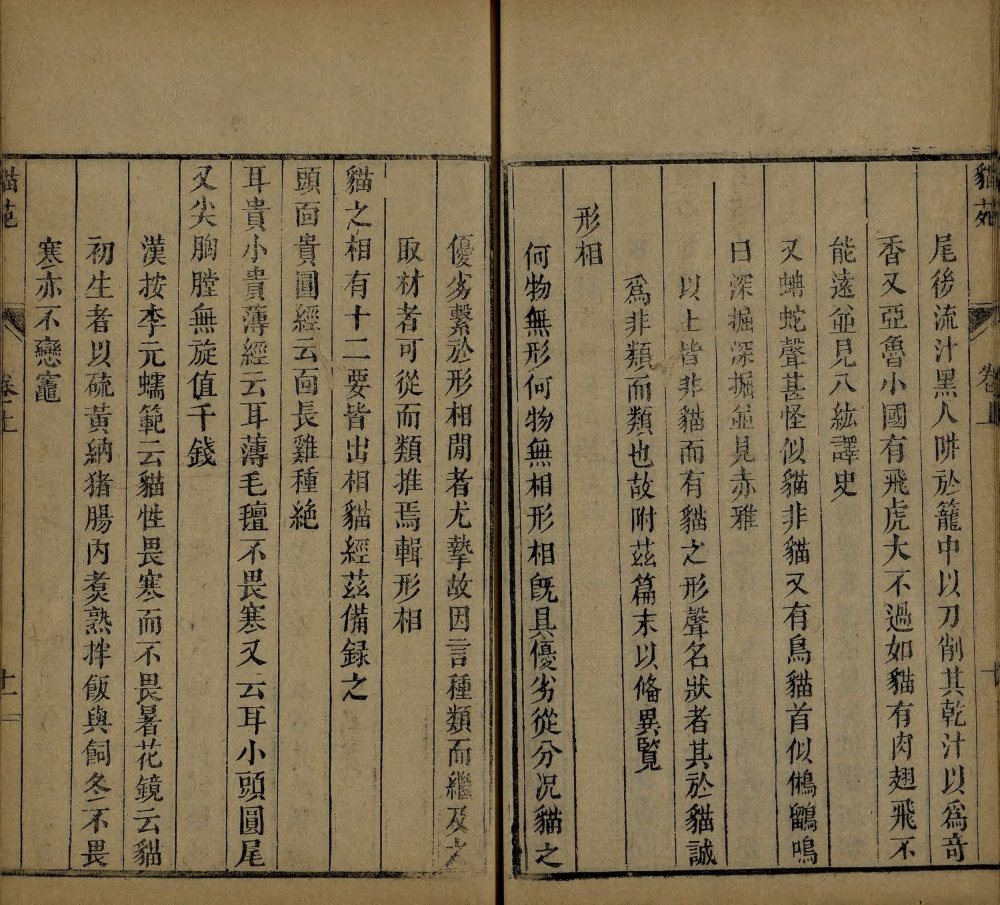 貓苑
尾後流汁黑人阱於籠中以刀削其乾汁以爲奇
香又亞魯小國有飛虎大不過如貓有肉翅飛不
能遠並見八紘譯史
又蜼蛇聲甚怪似貓非貓又有鳥貓首似鵂鶹鳴
曰深掘深掘並見赤雅
以上皆非貓而有貓之形聲名狀者其於貓誠
爲非類而類也故附茲篇末以備異覽
形相
何物無形何物無相形相旣具優劣從分况貓之
優劣繫於形相閒者尤摯故因言種類而繼及之
取材者可從而類推焉輯形相
貓之相有十二要皆出相貓經茲備録之
頭面貴圓經云面長雞種絶
耳貴小貴薄經云耳薄毛氊不畏寒又云耳小頭圓尾
又尖胸膛無旋值千錢
漢按李元蠕範云貓性畏寒而不畏暑花鏡云貓
初生者以硫黃納猪腸内煑熟拌飯與飼冬不畏
寒亦不戀竈
貓苑
卷上
十一